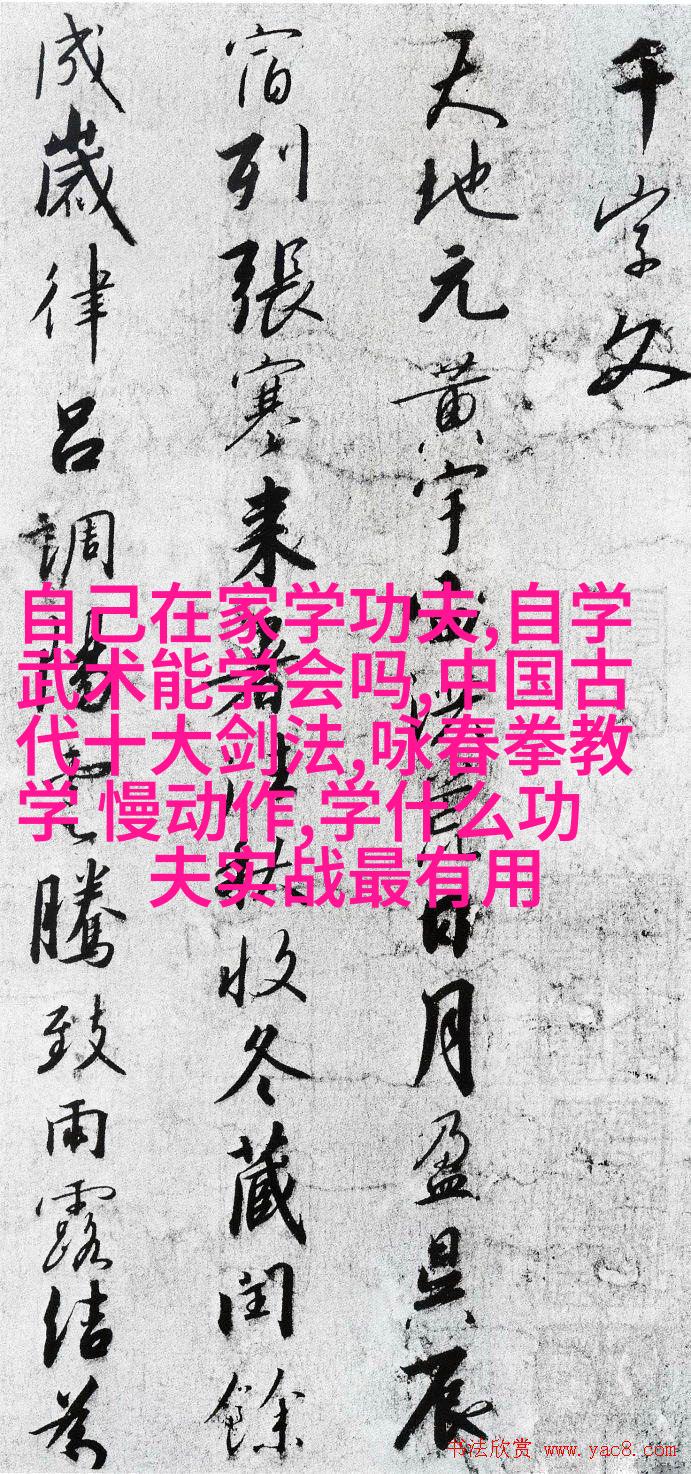 千字文
天地元黄宇宙洪荒日月盈昃辰
宿列張寒来暑往秋收冬蔵閏餘
成歲律吕調陽雲騰致雨露结為
自己在家学功夫,自学
武术能学会吗,中国古
代十大剑法,咏春拳教
学 慢动作,学什么功
夫实战最有用
书法欣赏 www.yac8.com